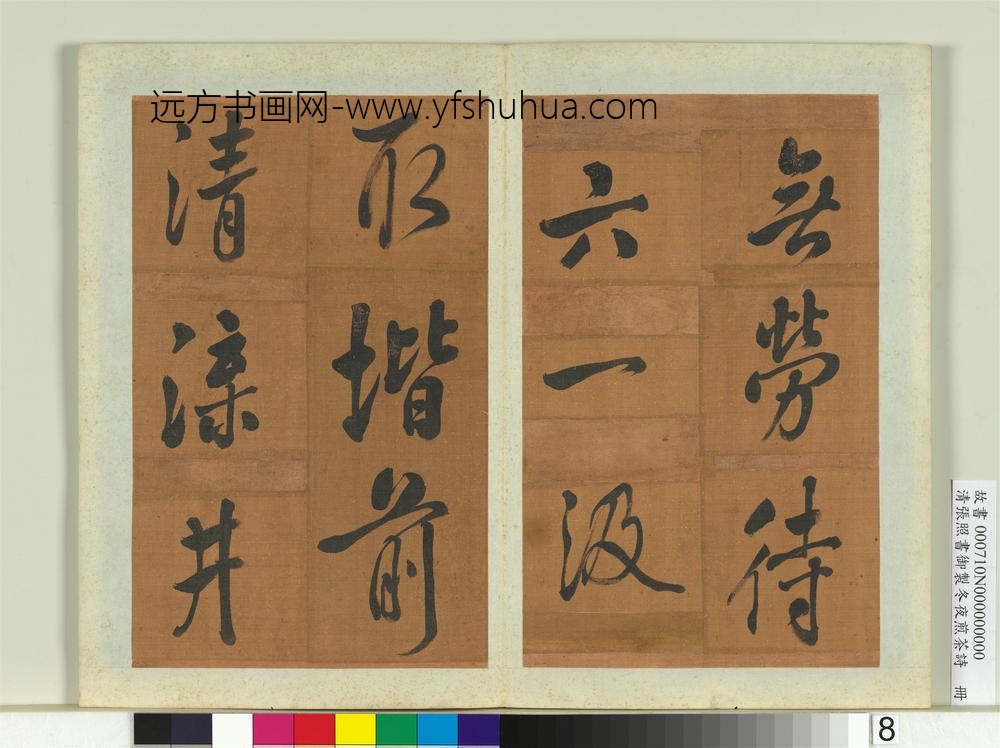 远方书画网-www.yfshuhua.com
無勞待
六一汲
取堦前
清渫井
故書 000710N000000000
清張照書御製冬夜煎茶詩 冊
8